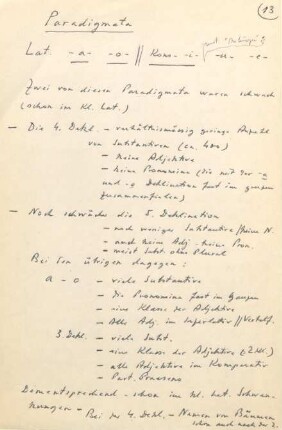 13
Paradigmata
Lat. -a- -o- // Kons -i- -u- -e-
Zwei von diesen Paradigmata waren schwach
(schon im Kl. Lat.)
- Die 4. Dekl. - verhältnismässig geringe Anzahl
von Substantiven (ca. 400)
- keine Adjektive
- keine Pronomina (die mit der -a
und -o Deklination fast im ganzen
zusammenfielen)
- Noch schwächer die 5. Deklination
- noch weniger Substantive / keine N.
- auch kein Adj - keine Pron.
- meist Subst. ohne Plural
Bei den übrigen dagegen :
a - o - viele Substantive
- Die Pronomina fast im Ganzen
- eine Klasse der Adjektive
- Alle Adj. im Superlativ //
3. Dekl. - viele Subst.
- eine Klasse der Adjektive (2. Kl.)
- alle Adjektive im Komparativ
- Part. Praesens
Dementsprechend - schon im kl. Lat. Schwan-
kungen - Bei der 4. Dekl. - Namen von Bäumen
schon auch nach der 2.